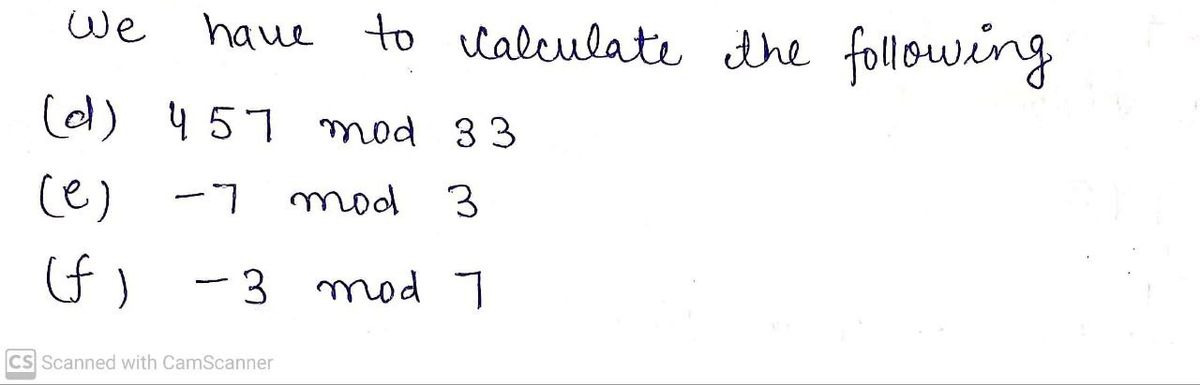 We have to calculate the following
(d) 457 mod 33
(e) -7 mod 3
(f) -3 mod 7
CS Scanned with CamScanner